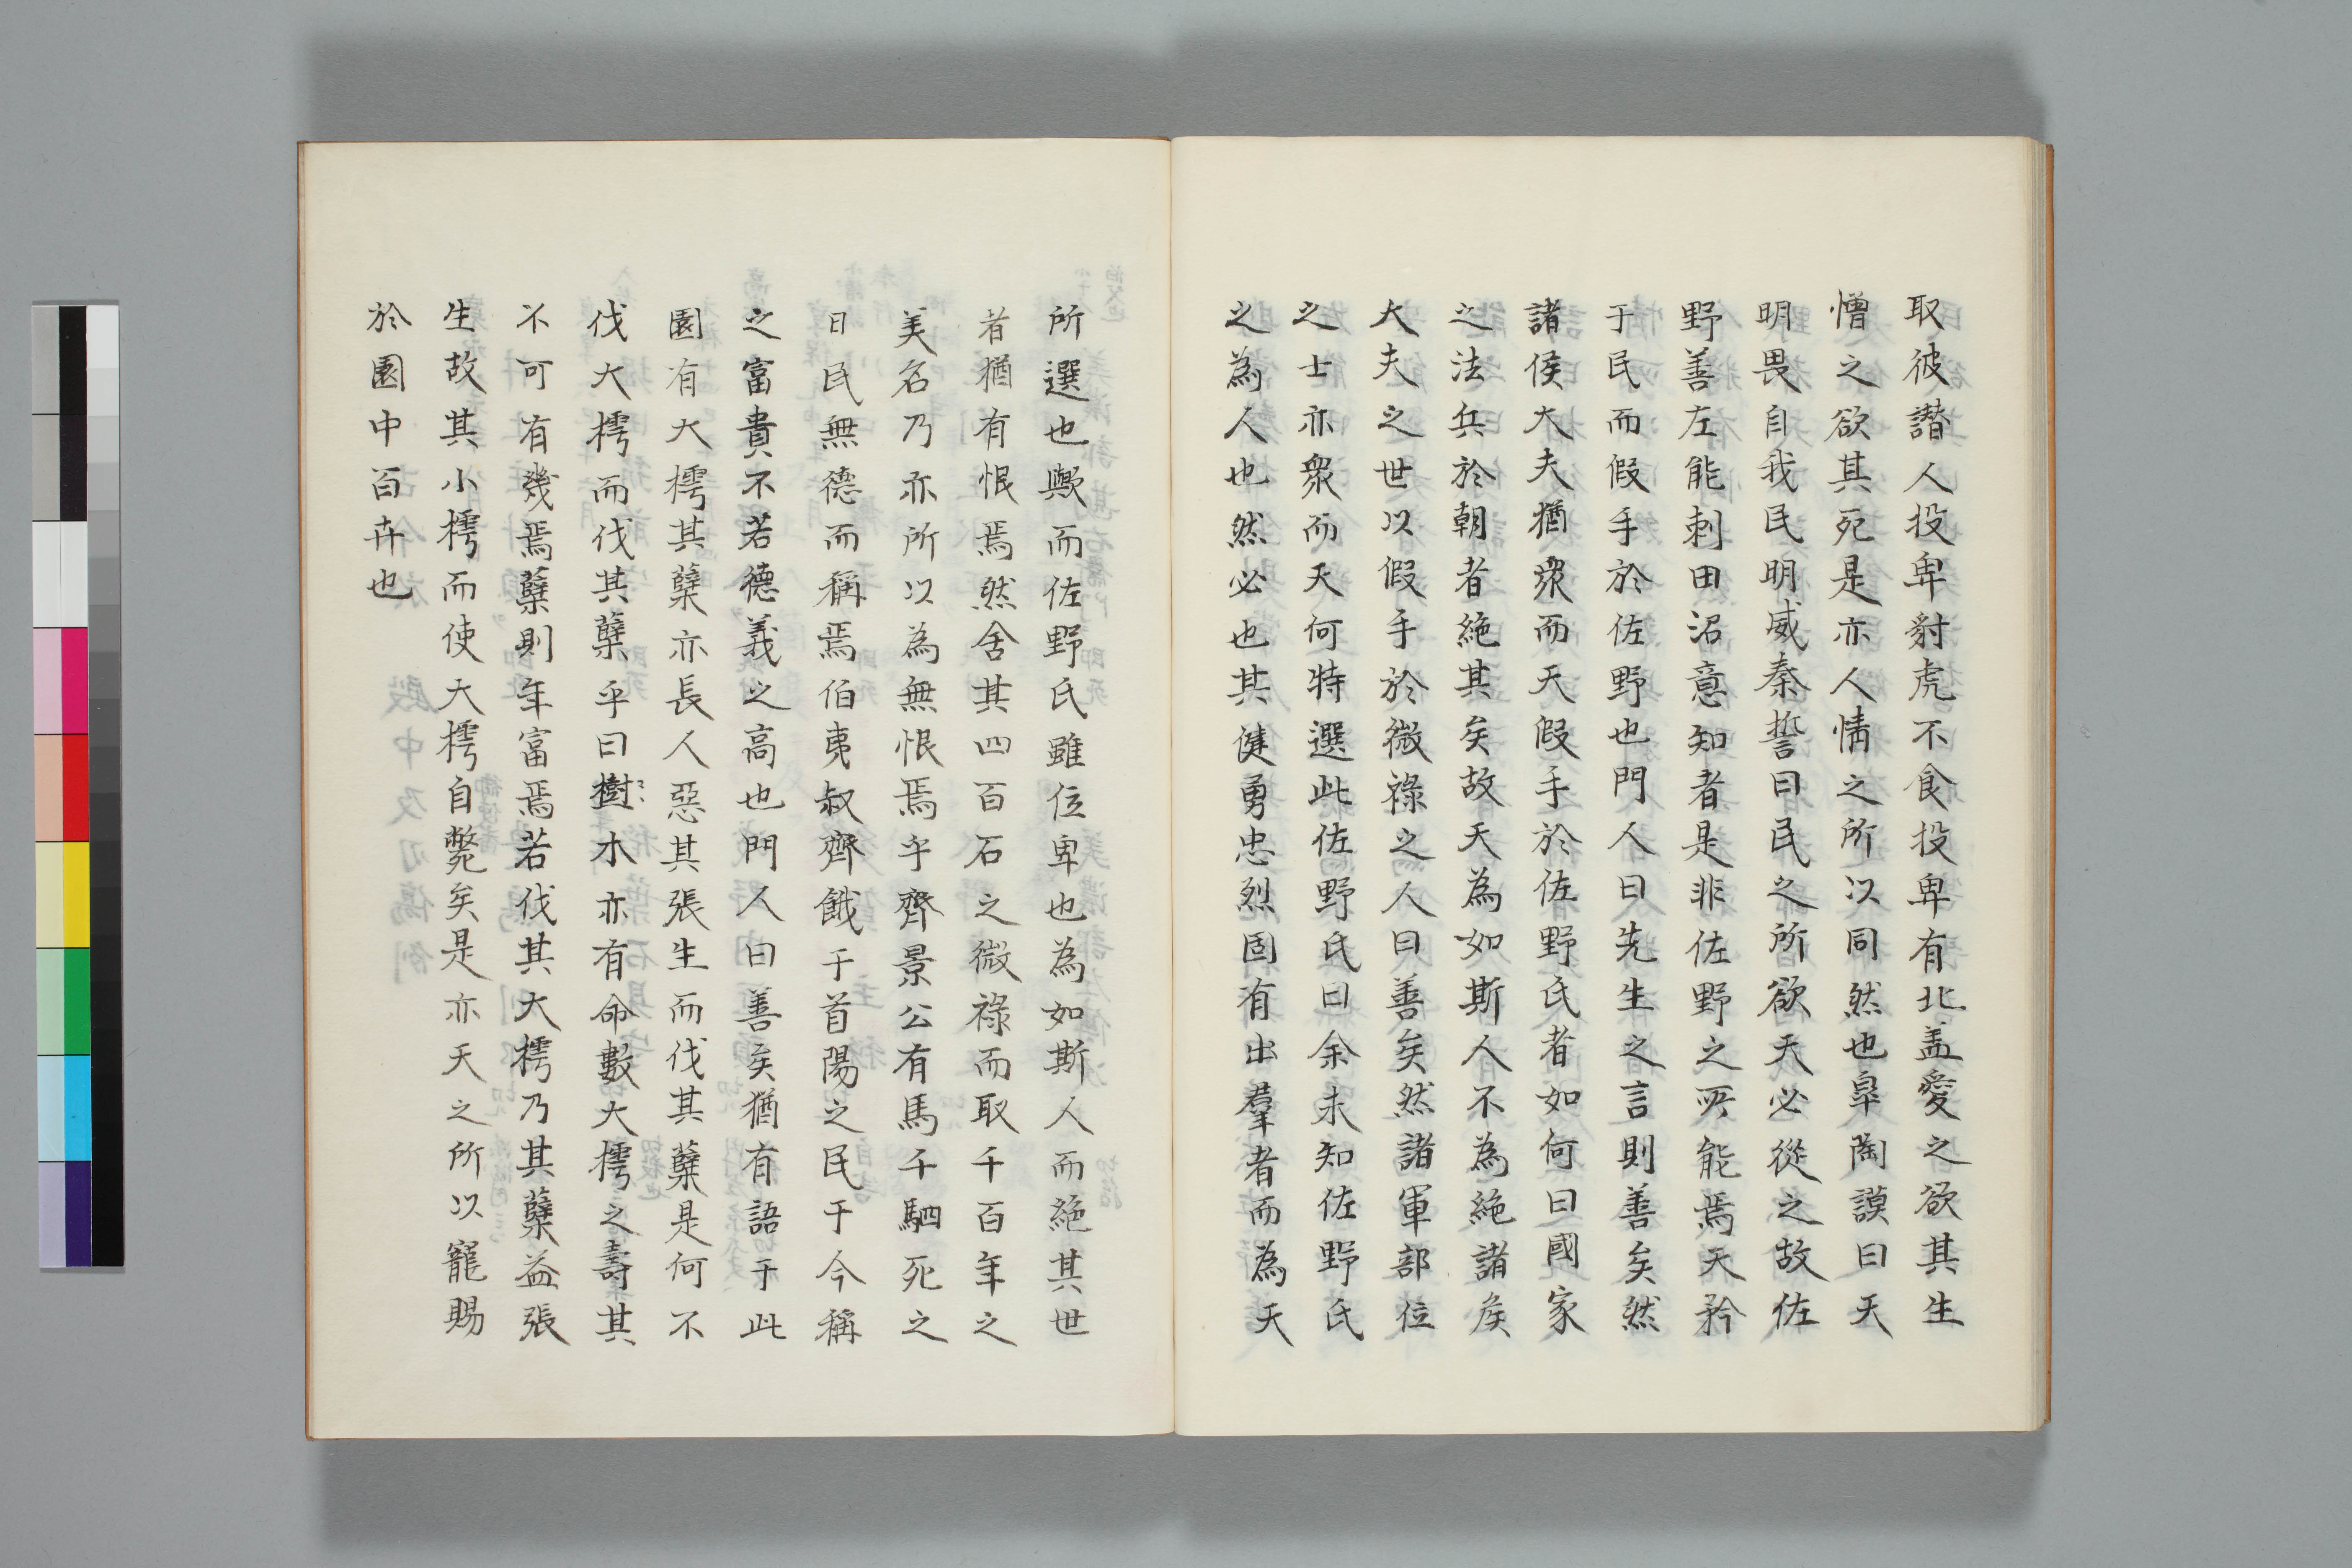 取彼譖人投卑豺虎不食投卑有北盖愛之欲其生
憎之欲其死是亦人情之所以同然也皐陶謨曰天
明畏自我民明威秦誓曰民之所欲天必從之故佐
野善左能刺田沼意知者是非佐野之所能焉天矜
于民而假手於佐野也門人曰先生之言則善矣然
諸侯大夫猶衆而天假手於佐野氏者如何曰國家
之法兵於朝者絶其矣故天為如斯人不為絶諸矦
大夫之世以假手於微祿之人曰善矣然諸軍部位
之士亦衆而天何特選此佐野氏曰余未知佐野氏
之為人也然必也其健勇忠烈固有出羣者而為天
所選也歟而佐野氏雖位卑也為如斯人而絶其世
者猶有恨焉然舍其四百石之微祿而取千百年之
美名乃亦所以為無恨焉乎齊景公有馬千駟死之
日民無德而稱焉伯夷叔齊餓于首陽之民于今稱
之富貴不若德義之高也門人曰善矣猶有語于此
園有大樗其蘖亦長人惡其張生而伐其蘖是何不
伐大樗而伐其蘖乎曰樹木亦有命數大樗之壽其
不可有幾焉蘖則年富焉若伐其大樗乃其蘖益張
生故其小樗而使大樗自斃矣是亦天之所以寵賜
於園中百卉也